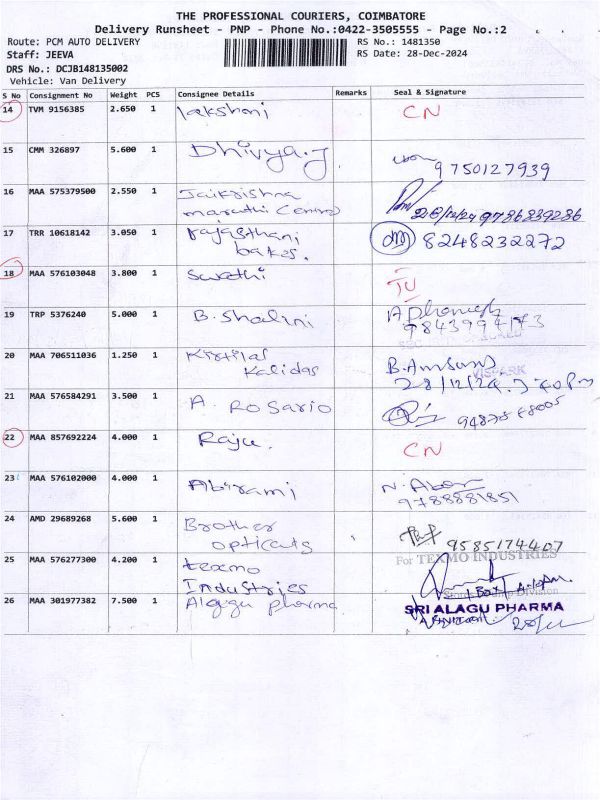 THE PROFESSIONAL COURIERS, COIMBATORE
Delivery Runsheet - PNP - Phone No.:0422-3505555 - Page No.:2
Route: PCM AUTO DELIVERY
RS No.: 1481350
Staff: JEEVA
RS Date: 28-Dec-2024
DRS No.: DCJB148135002
Vehicle: Van Delivery
S No Consignment No Weight PCS Consignee Details Remarks Seal & Signature
14 TVM 9156385 2.650 1 lakshmi CN
15 CMM 326897 5.600 1 Dhivya.J 9750127939
16 MAA 575379500 2.550 1 Jaikrishna
marathi 28/12/24 9786839286
17 TRR 10618142 3.050 1 rajasthani 8248232272
bakes.
18 MAA 576103048 3.800 1 Swathi
19 TRP 5376240 5.000 1 B. Shalini
20 MAA 706511036 1.250 1
Kalidas 28/12/24
21 MAA 576584291 3.500 1 A. Rosario
22 MAA 857692224 4.000 1 Raju. CN
23 MAA 576102000 4.000 1 Abirami
9788881851
24 AMD 29689268 5.600 1 Brother
opticals 9585174407
For TEXMO INDUSTRIES
25 MAA 576277300 4.200 1 texmo
Industries
26 MAA 301977382 7.500 1 Alagu pharma
SRI ALAGU PHARMA